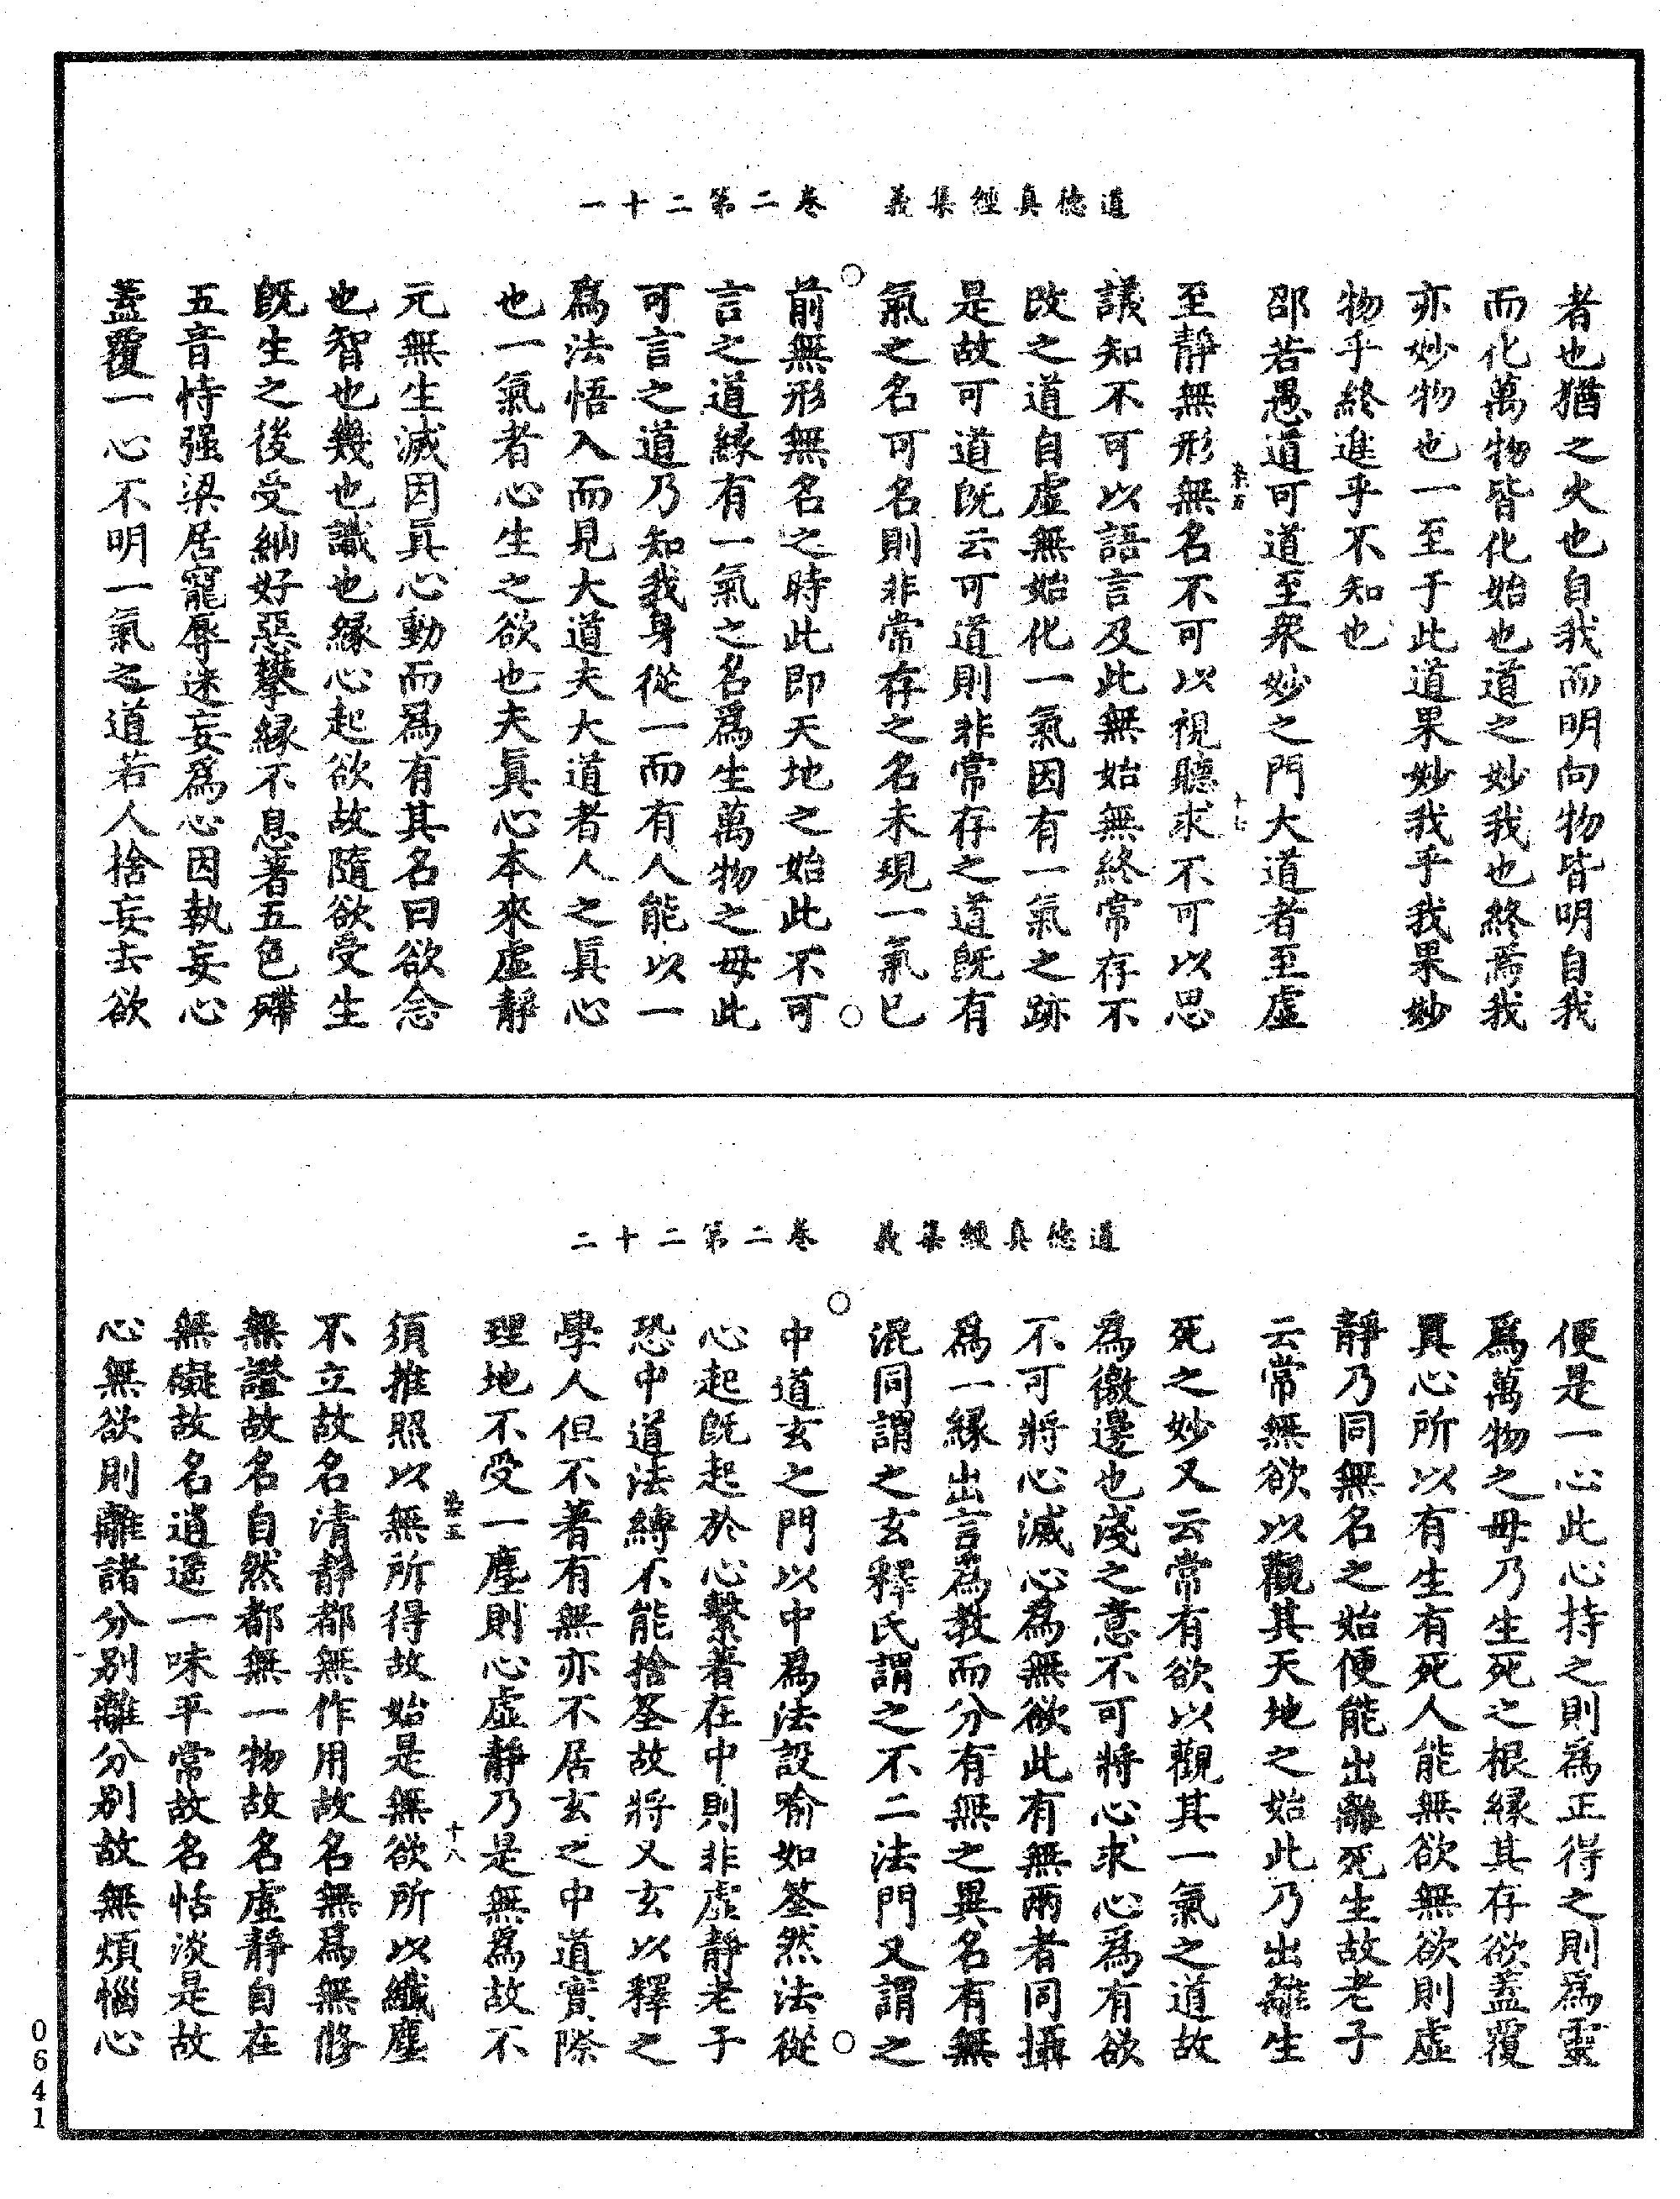 道德真經集義 卷二第二十一
者也猶之火也自我而明向物皆明自我
而化萬物皆化始也道之妙我也終焉我
亦妙物也一至于此道果妙我乎我果妙
物乎終進乎不知也
邵若愚道可道至衆妙之門大道者至虛
至靜無形無名不可以視聽求不可以思
議知不可以語言及此無始無終常存不
改之道自虛無始化一氣因有一氣之跡
是故可道既云可道則非常存之道既有
氣之名可名則非常存之名未現一氣已
前無形無名之時此即天地之始此不可
言之道緣有一氣之名爲生萬物之母此
可言之道乃知我身從一而有人能以一
爲法悟入而見大道夫大道者人之眞心
也一氣者心生之欲也夫眞心本來虛靜
元無生滅因眞心動而爲有其名曰欲念
也智也幾也識也緣心起欲故隨欲受生
旣生之後受納好惡攀緣不息著五色殢
五音恃强梁居寵辱迷妄爲心因執妄心
蓋覆一心不明一氣之道若人捨妄去欲
道德真經集義 卷二第二十二
便是一心此心持之則爲正得之則爲靈
爲萬物之母乃生死之根緣其存欲蓋覆
眞心所以有生有死人能無欲無欲則虛
靜乃同無名之始便能出離死生故老子
云常無欲以觀其天地之始此乃出離生
死之妙又云常有欲以觀其一氣之道故
爲徼邊也淺之意不可將心求心爲有欲
不可將心滅心爲無欲此有無兩者同攝
爲一緣出言爲教而分有無之異名有無
混同謂之玄釋氏謂之不二法門又謂之
中道玄之門以中爲法設喻如筌然法從
心起旣起於心繫著在中則非虛靜老子
恐中道法縛不能捨筌故將又玄以釋之
學人但不著有無亦不居玄之中道實際
理地不受一塵則心虛靜乃是無爲故不
須推照以無所得故始是無欲所以纖塵
不立故名清靜都無作用故名無爲無修
無證故名自然都無一物故名虛靜自在
無礙故名逍遥一味平常故名恬淡是故
心無欲則離諸分別離分別故無煩惱心
0641